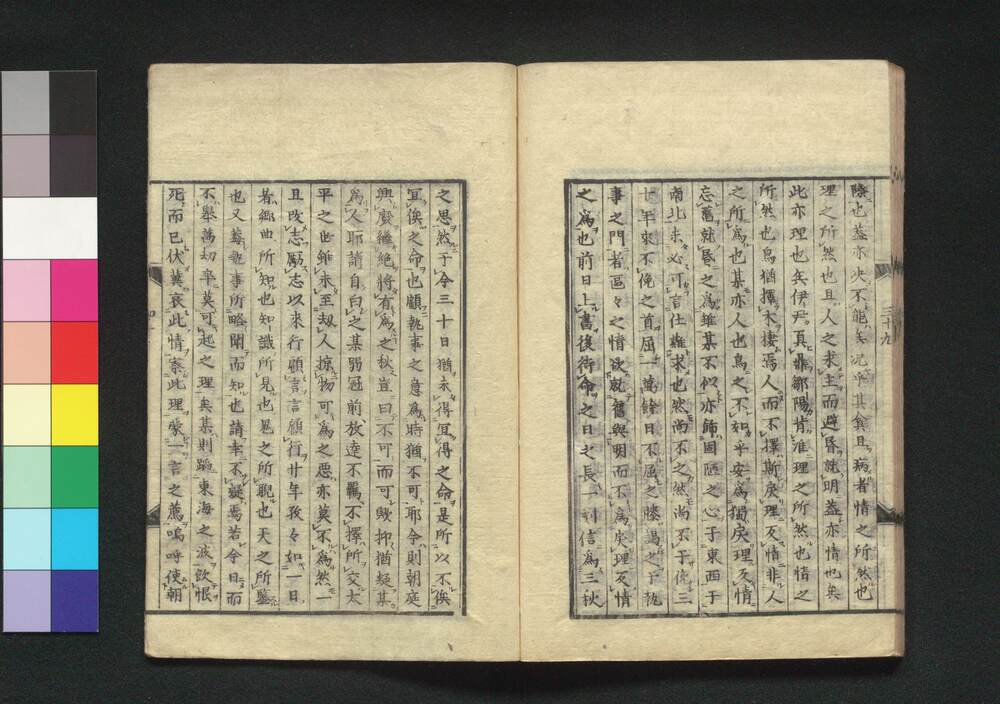 除也蓋亦決不能矣況乎其貪且病者情之所然也
理之所然也且人之求主而避昏就明蓋亦情也矣
此亦理也矣伊尹夏非鄒陽肯准理之所然也情之
所然也鳥猶擇木棲焉人而不擇斯戻理反情非人
之所為也某亦人也鳥之不如乎安為損戻理反情
忘舊就昏之為雖某不似亦飾固陋之心于東西于
南北求必可言仕難求也然尚不之然尚不于侯三
七年來不俛之首屈一萬餘日不屈之膝謁之于執
事之門者區々之情欲就舊與明而不為戻理反情
之為也前日上書後待命之日之長一刻信為三秋
之思然于今三十日猶未得宜得之命是所以不俟
宜俟之命也顧執事之意為時猶不可耶今則朝庭
興廢繼絶將有為之秋豈曰不可而可歟抑猶疑某
為人耶請自白之某弱冠前放達不羈不擇所交太
平之世雖未至劫人掠物可為之悪亦莫不為然一
且改志勵志以來行顧言言顧行廿年孜々如一日
者郷曲所知也知識所見也邑之所覩也天之所鑒
也又蓋執事所略聞而知也請幸不疑焉若今日而
不舉萬切卒莫可起之理矣某則蹈東海之波飲恨
死而已伏冀哀此情察此理賜一言之薦嗚呼使朝
三十九
四十